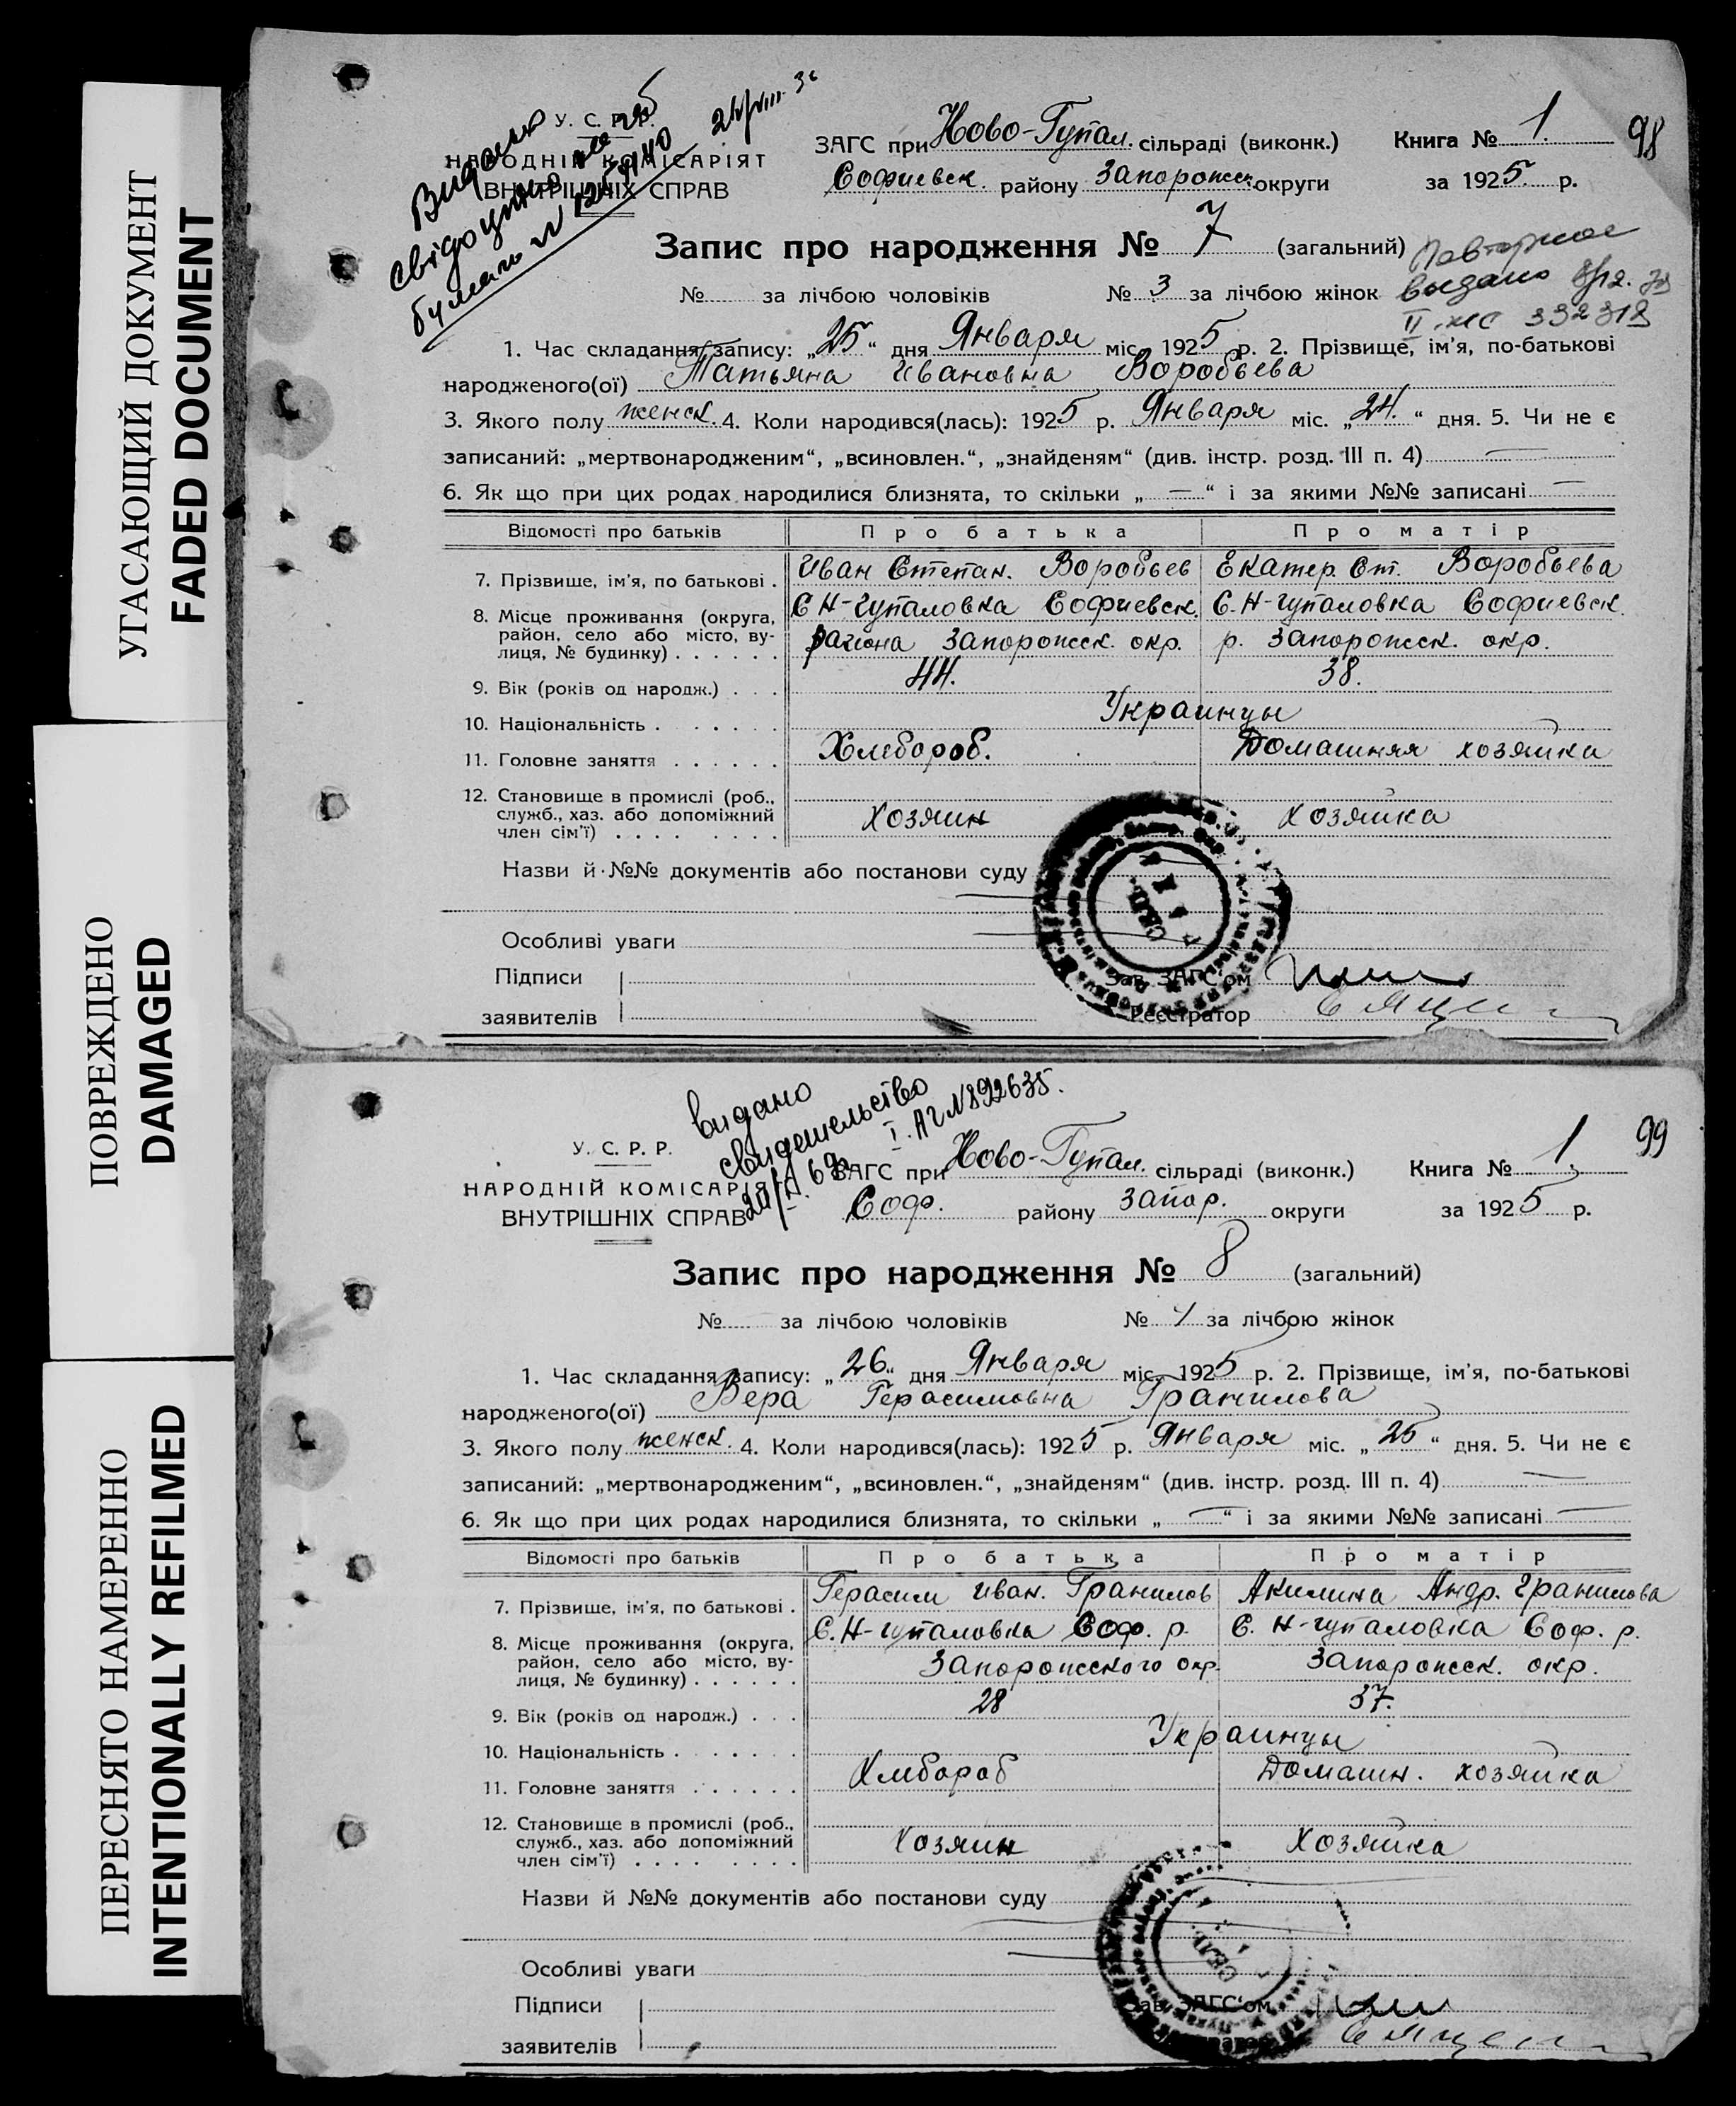 УГАСАЮЩИЙ ДОКУМЕНТ
FADED DOCUMENT
ПОВРЕЖДЕНО
DAMAGED
ПЕРЕСНЯТО НАМЕРЕННО
INTENTIONALLY REFILMED
Видано
свідоцтво
У. С. Р. Р.
НАРОДНІЙ КОМІСАРІЯТ
ВНУТРІШНІХ СПРАВ
ЗАГС при Ново-Гупал. сільраді (виконк.) Книга № 1. 98
Софиевск. району Запорожск. округи за 1925 р.
Запис про народження № 7 (загальний)
Повторное
выдано
II 332318
№ за лічбою чоловіків № 3 за лічбою жінок
1. Час складання запису: „25“ дня Января міс. 1925 р. 2. Прізвище, ім'я, по-батькові
народженого(ої) Татьяна Ивановна Воробьева
3. Якого полу женск. 4. Коли народився(лась): 1925 р. Января міс. „24.“ дня. 5. Чи не є
записаний: „мертвонародженим“, „всиновлен.“, „знайденям“ (див. інстр. розд. III п. 4) —
6. Як що при цих родах народилися близнята, то скільки „—“ і за якими №№ записані —
Відомості про батьків Про батька Про матір
7. Прізвище, ім'я, по батькові . Иван Степан. Воробьев Екатер. Ст. Воробьева
8. Місце проживання (округа, район, село або місто, вулиця, № будинку) С Н-Гупаловка Софиевск. С. Н-Гупаловка Софиевск.
района Запорожск. окр. р. Запорожск. окр.
9. Вік (років од народж.) 44. 38.
10. Національність Украинцы
11. Головне заняття Хлебороб. Домашняя хозяйка
12. Становище в промислі (роб., служб., хаз. або допоміжний член сім'ї) Хозяин Хозяйка
Назви й №№ документів або постанови суду
Особливі уваги
Підписи
заявителів
Зав. ЗАГС'ом
Реєстратор
видано
свидетельство
I. АГ №892635.
У. С. Р. Р.
НАРОДНІЙ КОМІСАРІЯТ
ВНУТРІШНІХ СПРАВ
ЗАГС при Ново-Гупал. сільраді (виконк.) Книга № 1. 99
Соф. району Запор. округи за 1925 р.
Запис про народження № 8 (загальний)
№ за лічбою чоловіків № 4 за лічбою жінок
1. Час складання запису: „26“ дня Января міс. 1925 р. 2. Прізвище, ім'я, по-батькові
народженого(ої) Вера Герасимовна Гранилова
3. Якого полу женск. 4. Коли народився(лась): 1925 р. Января міс. „25“ дня. 5. Чи не є
записаний: „мертвонародженим“, „всиновлен.“, „знайденям“ (див. інстр. розд. III п. 4) —
6. Як що при цих родах народилися близнята, то скільки „—“ і за якими №№ записані —
Відомості про батьків Про батька Про матір
7. Прізвище, ім'я, по батькові . Герасим Иван. Гранилов Акилина Андр. Гранилова
8. Місце проживання (округа, район, село або місто, вулиця, № будинку) С. Н-Гупаловка Соф. р. С. Н-Гупаловка Соф. р.
Запорожского окр. Запорожск. окр.
9. Вік (років од народж.) 28 37.
10. Національність Украинцы
11. Головне заняття Хлебороб Домашн. хозяйка
12. Становище в промислі (роб., служб., хаз. або допоміжний член сім'ї) Хозяин Хозяйка
Назви й №№ документів або постанови суду
Особливі уваги
Підписи
заявителів
Зав. ЗАГС'ом